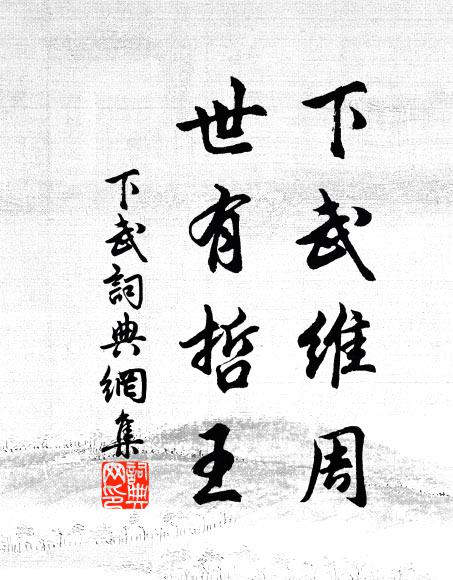 下武維周
世有哲王
下武詞典網集
詞典網印